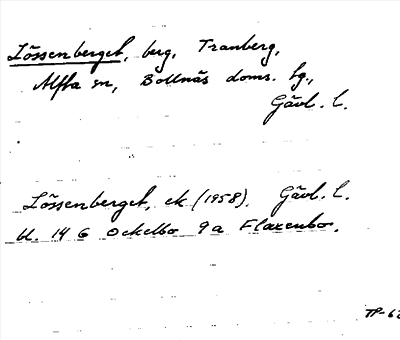 Lössenberget, berg, Tranberg,
Alfta sn, Bollnäs doms. hg.,
Gävl. l.
Lössenberget, ek (1958). Gävl. l.
bl. 14 G Ockelbo 9 a Flaxenbo.
TP-62